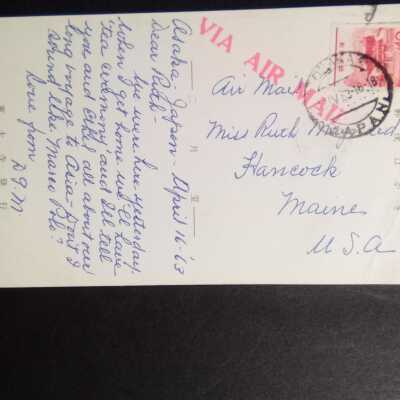 Osaka - Japan - April 16 '63
Dear Ruth -
We were here yesterday.
When I get home we'll have
"tea ceremony" and I'll tell
you and all about our
long voyage to Asia - Don't I
sound like Marco Polo?
Love from
D.G.M.
VIA AIR MAIL
Air Mail
Miss Ruth
Hancock
Maine
U.S.A
JAPAN